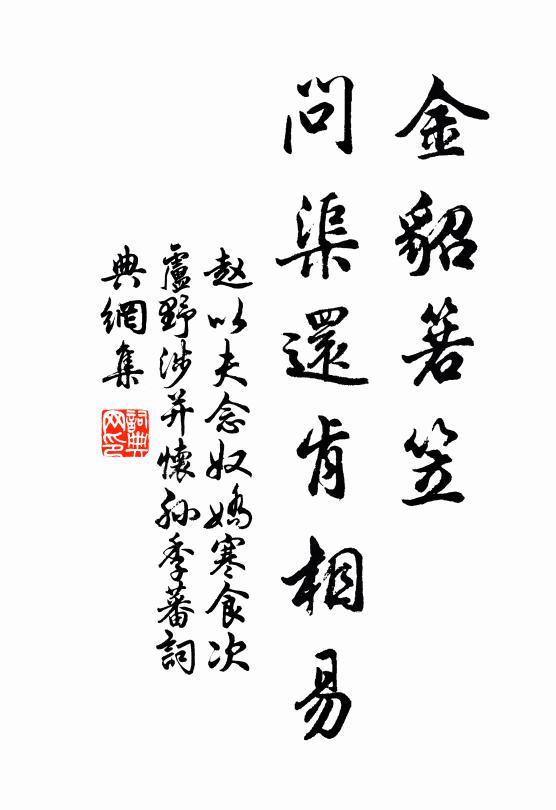 金貂箬笠
問渠還肯相易
赵以夫念奴嬌寒食次
盧野涉并懷孙季蕃詞
典網集
詞典网印